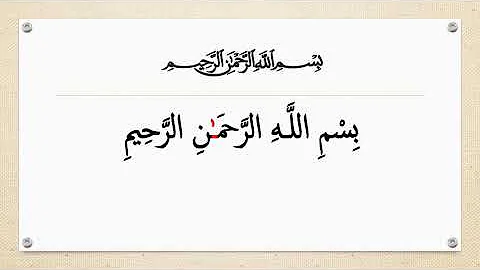 بِسْمِ اللَّهِ الرَّحْمَٰنِ الرَّحِيمِ
بِسْمِ اللَّهِ الرَّحمَـٰنِ الرَّحِيمِ